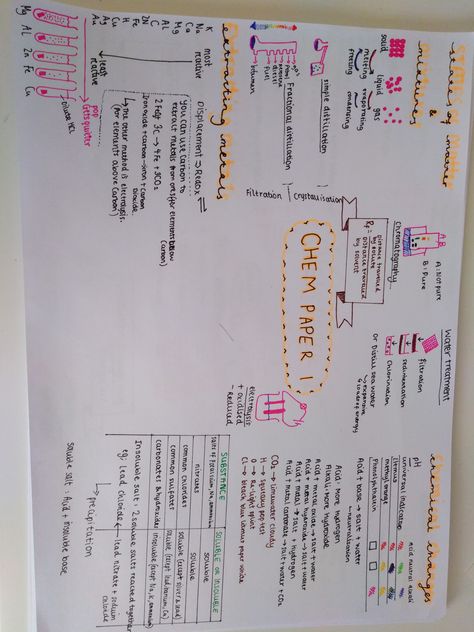 States of matter
&
mixtures
solid
liquid
gas
melting
evaporating
freezing
condensing
simple distillation
Fractional distillation
petrol
fuel
bitumen
Filtration
Crystallisation
Chromatography
A B
A: Not pure
B: Pure
Rf =
distance travelled
by solute
distance travelled
by solvent
Water treatment
filtration
sedimentation
chlorination
Or Distill sea water
↳ expensive
↳ loads of energy
CHEM PAPER 1
electrolysis
+ oxidised
- Reduced
Extracting metals
most
reactive
K
Na
Ca
Mg
AL
C
Zn
Fe
H
Cu
Ag
Au
least
reactive
Displacement → Redox
You can use carbon to
extract metals from ore (for elements below
carbon)
iron oxide + carbon → iron + carbon
dioxide
↳ the other method is electrolysis.
(for elements above carbon)
Mg
AL
Zn
Fe
Cu
dilute HCL
pop
Gets quieter
Chemical changes
pH
acid
neutral
alkali
universal indicator
litmus
methyl orange
Phenolphthalein
Acid + base → salt + water
↳ neutralisation
Acid: more hydrogen
Alkali: more hydroxide
Acid + metal oxide → salt + water
Acid + metal hydroxide → salt + water
Acid + metal → salt + hydrogen
Acid + metal carbonate → salt + water + CO2
CO2 → limewater cloudy
H → squeaky pop test
O → Re-light splint
CL → bleaches blue litmus paper white
SUBSTANCE
SOLUBLE OR INSOLUBLE
nitrates
soluble
common chlorides
soluble (except silver & lead)
common sulfates
soluble (except lead, barium, Ca)
carbonates & hydroxides
insoluble (except Na, K, ammonium)
Insoluble salt: 2 soluble salts reacted together
eg. Lead chloride → lead nitrate + sodium
chloride
↳ precipitation
Soluble salt : Acid + insoluble base